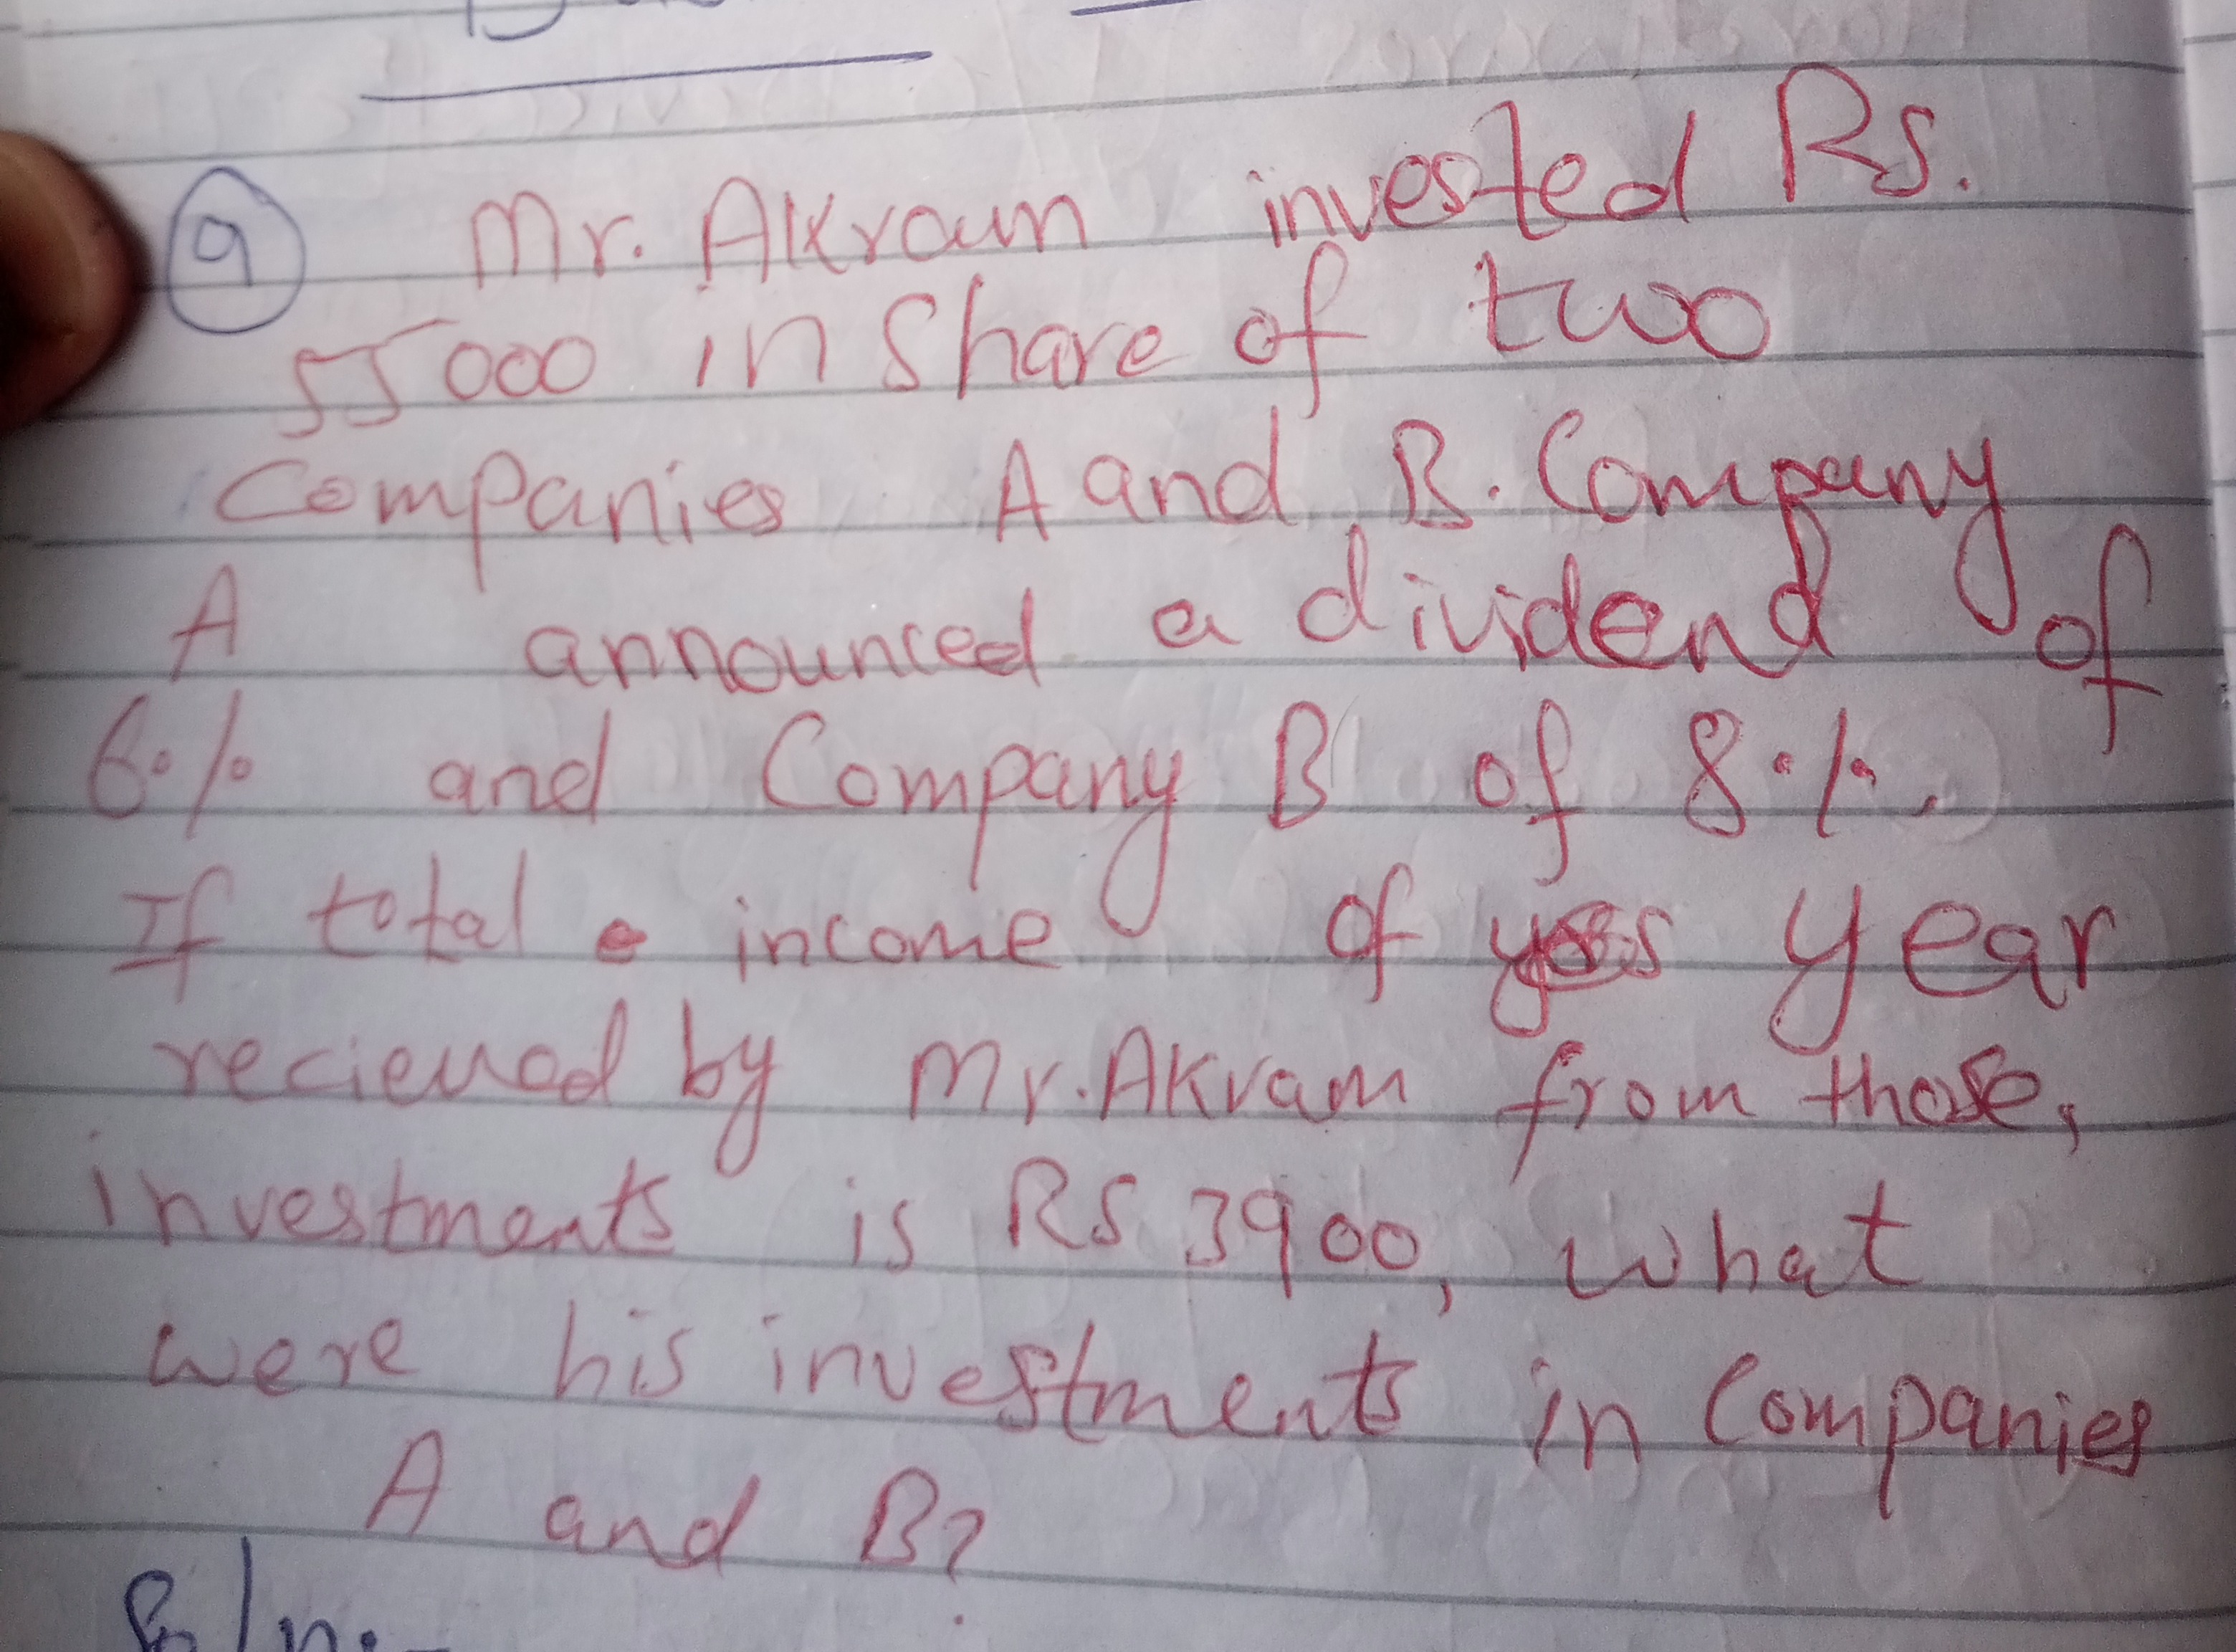 9 Mr. Akram invested Rs.
55000 in Share of two
Companies A and B. Company
A announced a dividend of
6% and Company B of 8%.
If total income of year
recieved by Mr. Akram from those,
investments is RS 3900, what
were his investments in Companies
A and B?
Soln:-